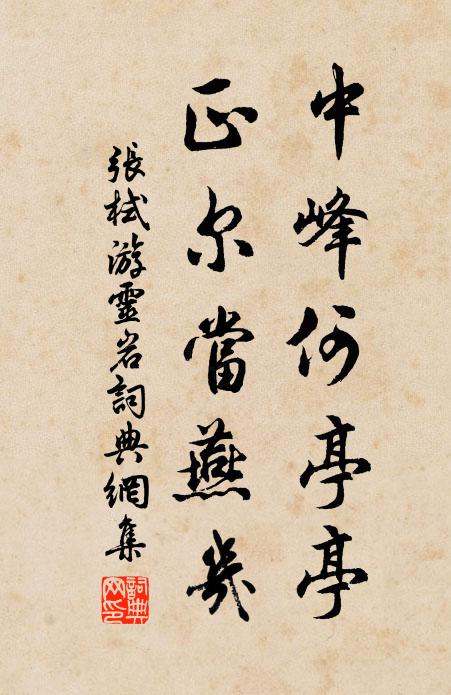 中峰何亭亭
正尔當燕几
張栻游靈岩詞典網集
詞典网印